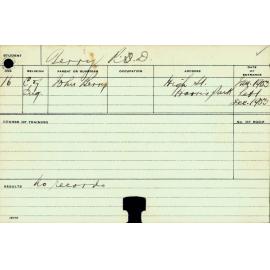 STUDENT
Perry R.B.D
AGE RELIGION PARENT OR GUARDIAN OCCUPATION ADDRESS DATE OF ENTRANCE
16 John Perry High St.
Harris Park
Dec. 1903
COURSE OF TRAINING No. OF ROOM
RESULTS no records